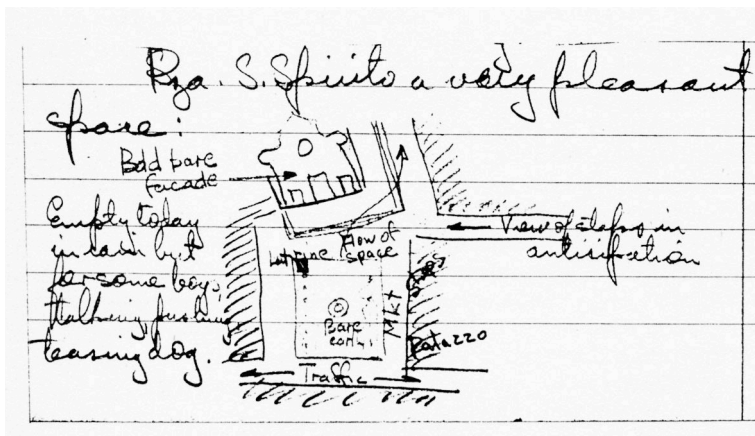 Pza. S. Spirito a very pleasant
space:
Bold bare
facade
Empty today
in rain but
for some boys,
talking, pushing,
teasing dog.
View of steps in
anticipation
Flow of
space
Latrine
Bare
earth
Mkt
Palazzo
Traffic